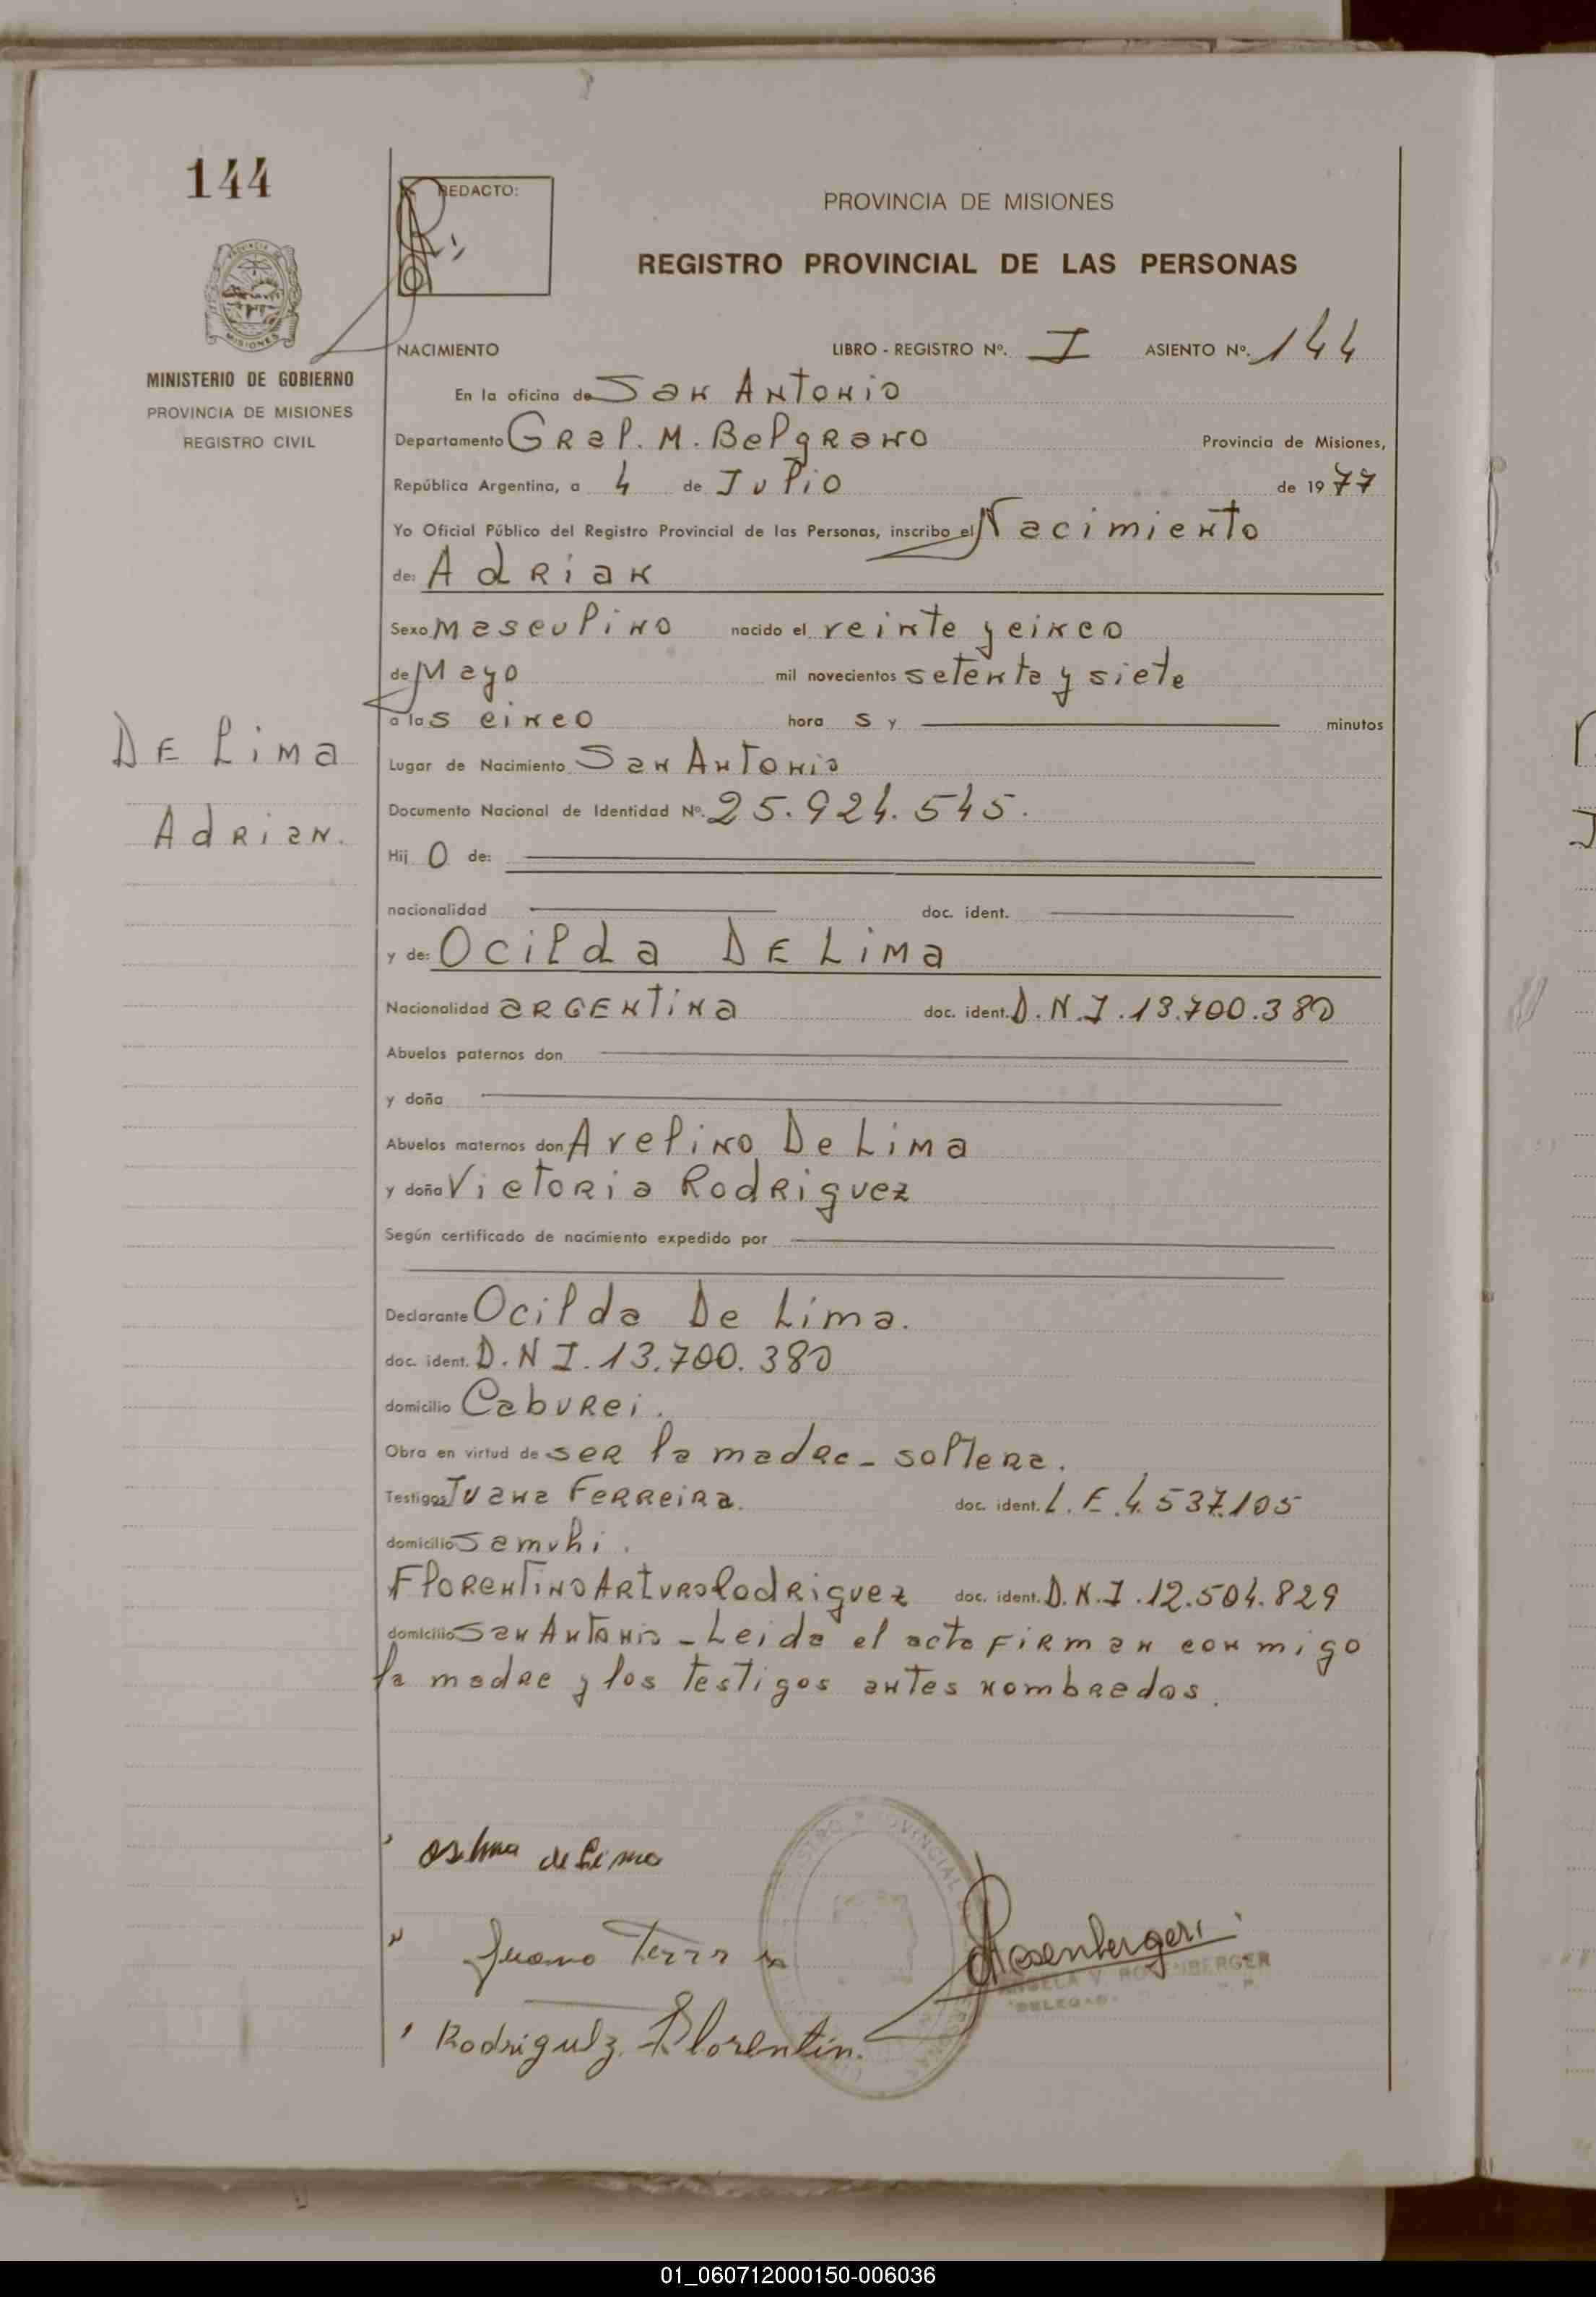 144
REDACTO:
PROVINCIA DE MISIONES
REGISTRO PROVINCIAL DE LAS PERSONAS
MISIONES
MINISTERIO DE GOBIERNO
PROVINCIA DE MISIONES
REGISTRO CIVIL
NACIMIENTO LIBRO - REGISTRO Nº. I ASIENTO Nº. 144
En la oficina de San Antonio
Departamento Gral. M. Belgrano Provincia de Misiones,
República Argentina, a 4 de Julio de 1977
Yo Oficial Público del Registro Provincial de las Personas, inscribo el Nacimiento
de: Adrian
Sexo masculino nacido el veinte y cinco
de Mayo mil novecientos setenta y siete
a las cinco hora s y minutos
De Lima
Adrian.
Lugar de Nacimiento San Antonio
Documento Nacional de Identidad Nº. 25.924.545.
Hij o de:
nacionalidad doc. ident.
y de: Ocilda De Lima
Nacionalidad argentina doc. ident. D.N.I. 13.700.380
Abuelos paternos don
y doña
Abuelos maternos don Avelino De Lima
y doña Victoria Rodriguez
Según certificado de nacimiento expedido por
Declarante Ocilda De Lima.
doc. ident. D.N I. 13.700.380
domicilio Caburei.
Obra en virtud de ser la madre - soltera.
Testigos Juana Ferreira. doc. ident. L.E. 4.537.105
domicilio Samuhi.
Florentino Arturo Rodriguez doc. ident. D.N.I. 12.504.829
domicilio San Antonio - Leida el acta firman conmigo
la madre y los testigos antes nombrados.
de Lima
Juana
Rosenberger
ANGELA V. ROSENBERGER
Rodriguez Florentin.
REGISTRO PROVINCIAL
01_060712000150-006036